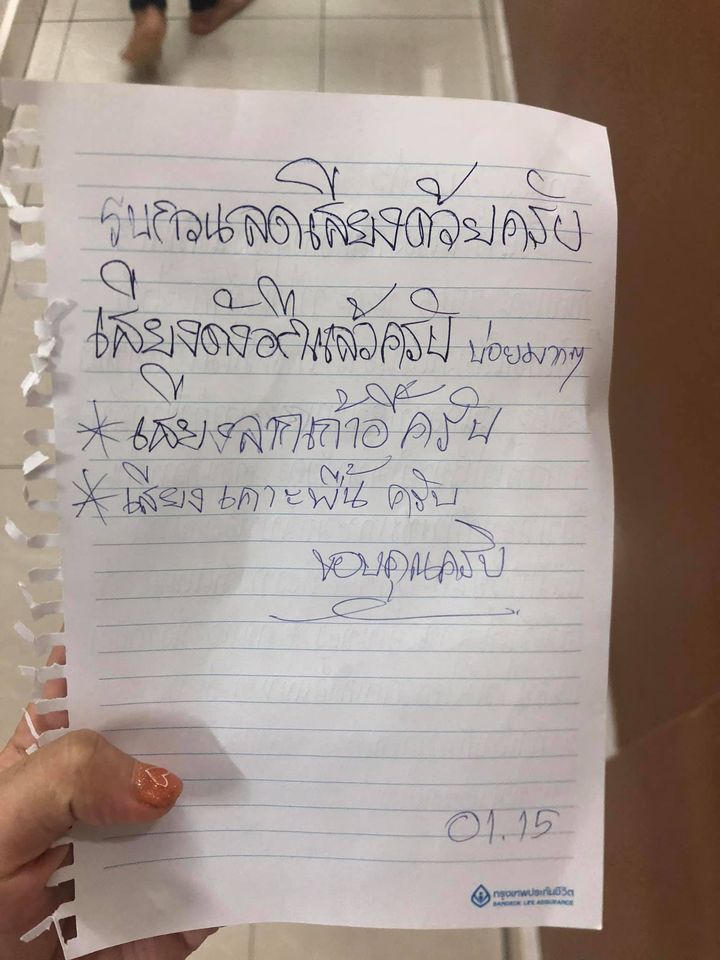 รบกวนลดเสียงด้วยครับ
เสียงดังอีกแล้วครับ บ่อยมากๆ
* เสียงลากเก้าอี้ ครับ
* เสียง เคาะพื้น ครับ
ขอบคุณครับ
01.15
กรุงเทพประกันชีวิต
BANGKOK LIFE ASSURANCE